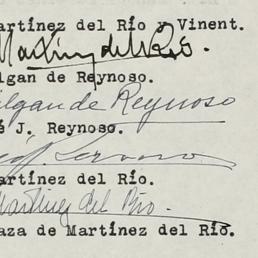 artínez del Río y Vinent.
Martínez del Río.
lgan de Reynoso.
elgan de Reynoso
é J. Reynoso.
artínez del Río.
Martínez del Río.
aza de Martínez del Río.